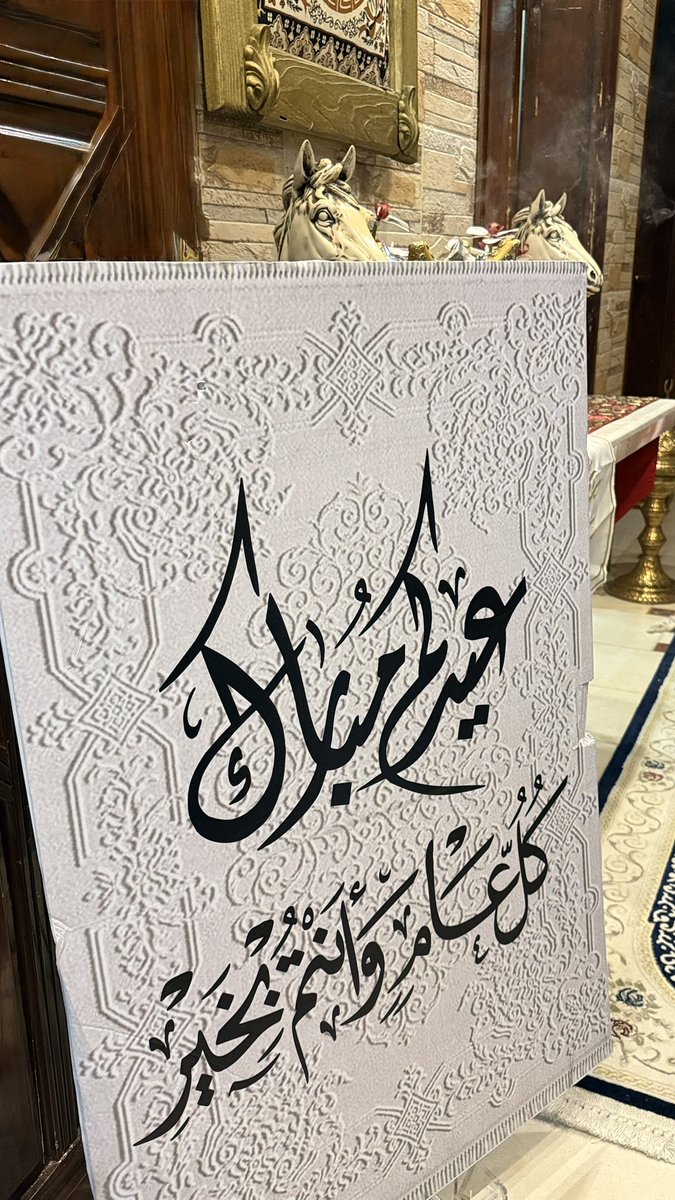 عيدكم مُبارك
كُلُّ عَامٍ وَأَنْتُمْ بِخَيْرٍ